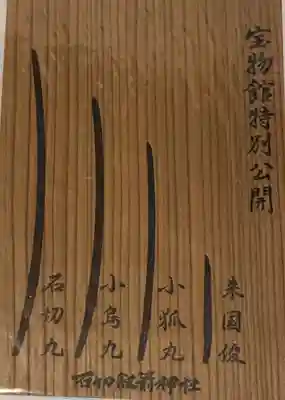 宝物館特別公開
来国俊
小狐丸
小烏丸
石切丸
石切劔箭神社